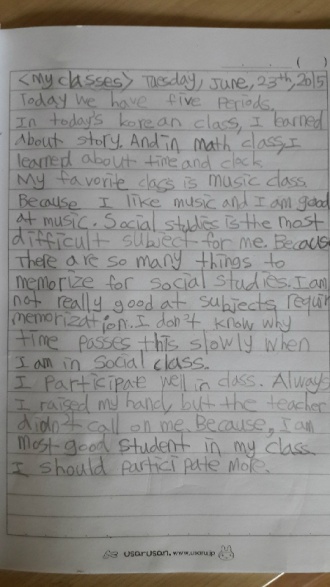 ( )
<My classes> Tuesday, June, 23th, 2015
Today we have five periods.
In today's korean class, I learned
about story. And in math class, I
learned about time and clock.
My favorite class is music class.
Because I like music and I am good
at music. Social studies is the most
difficult subject for me. Because
There are so many things to
memorize for social studies. I am
not really good at subjects requir
memorization. I don't know why
time passes this slowly when
I am in social class.
I participate well in class. Always
I raised my hand, but the teacher
didn't call on me. Because, I am
most good student in my class.
I should participate more.
usarusan. www.usaru.jp